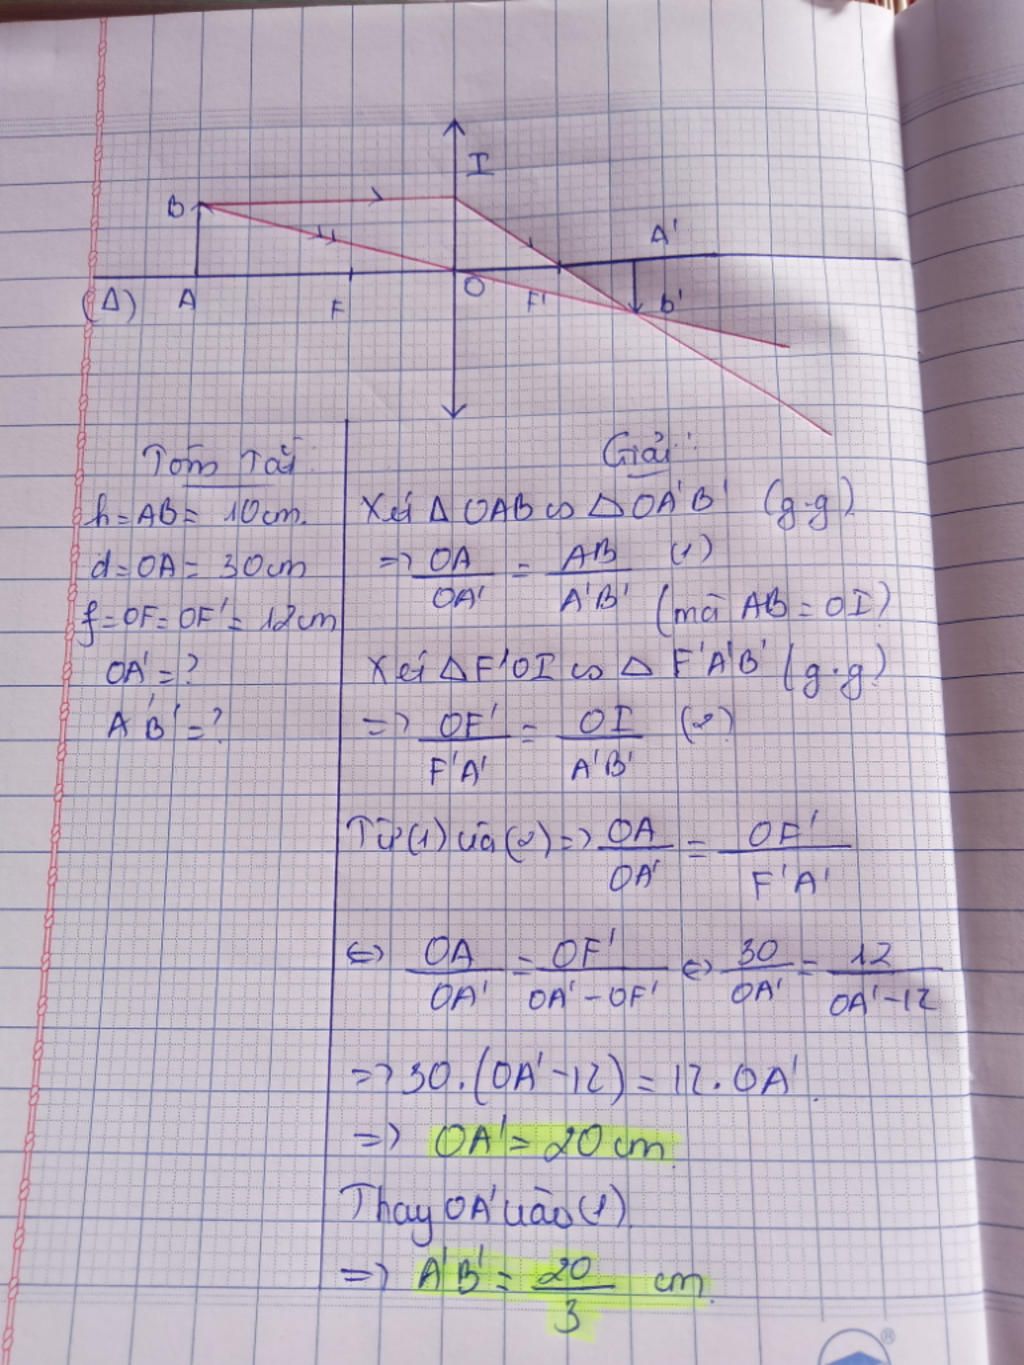 I
B
A'
(Δ) A F O F' B'
Tóm Tắt:
h = AB = 10cm.
d = OA = 30cm
f = OF = OF' = 12cm
OA' = ?
A'B' = ?
Giải:
Xét Δ OAB ∽ Δ OA'B' (g.g)
=> OA/OA' = AB/A'B' (1)
(mà AB = OI)
Xét Δ F'OI ∽ Δ F'A'B' (g.g)
=> OF'/F'A' = OI/A'B' (2)
Từ (1) và (2) => OA/OA' = OF'/F'A'
<=> OA/OA' = OF'/OA' - OF' <=> 30/OA' = 12/OA' - 12
=> 30.(OA' - 12) = 12.OA'.
=> OA' = 20 cm.
Thay OA' vào (1).
=> A'B' = 20/3 cm.
®